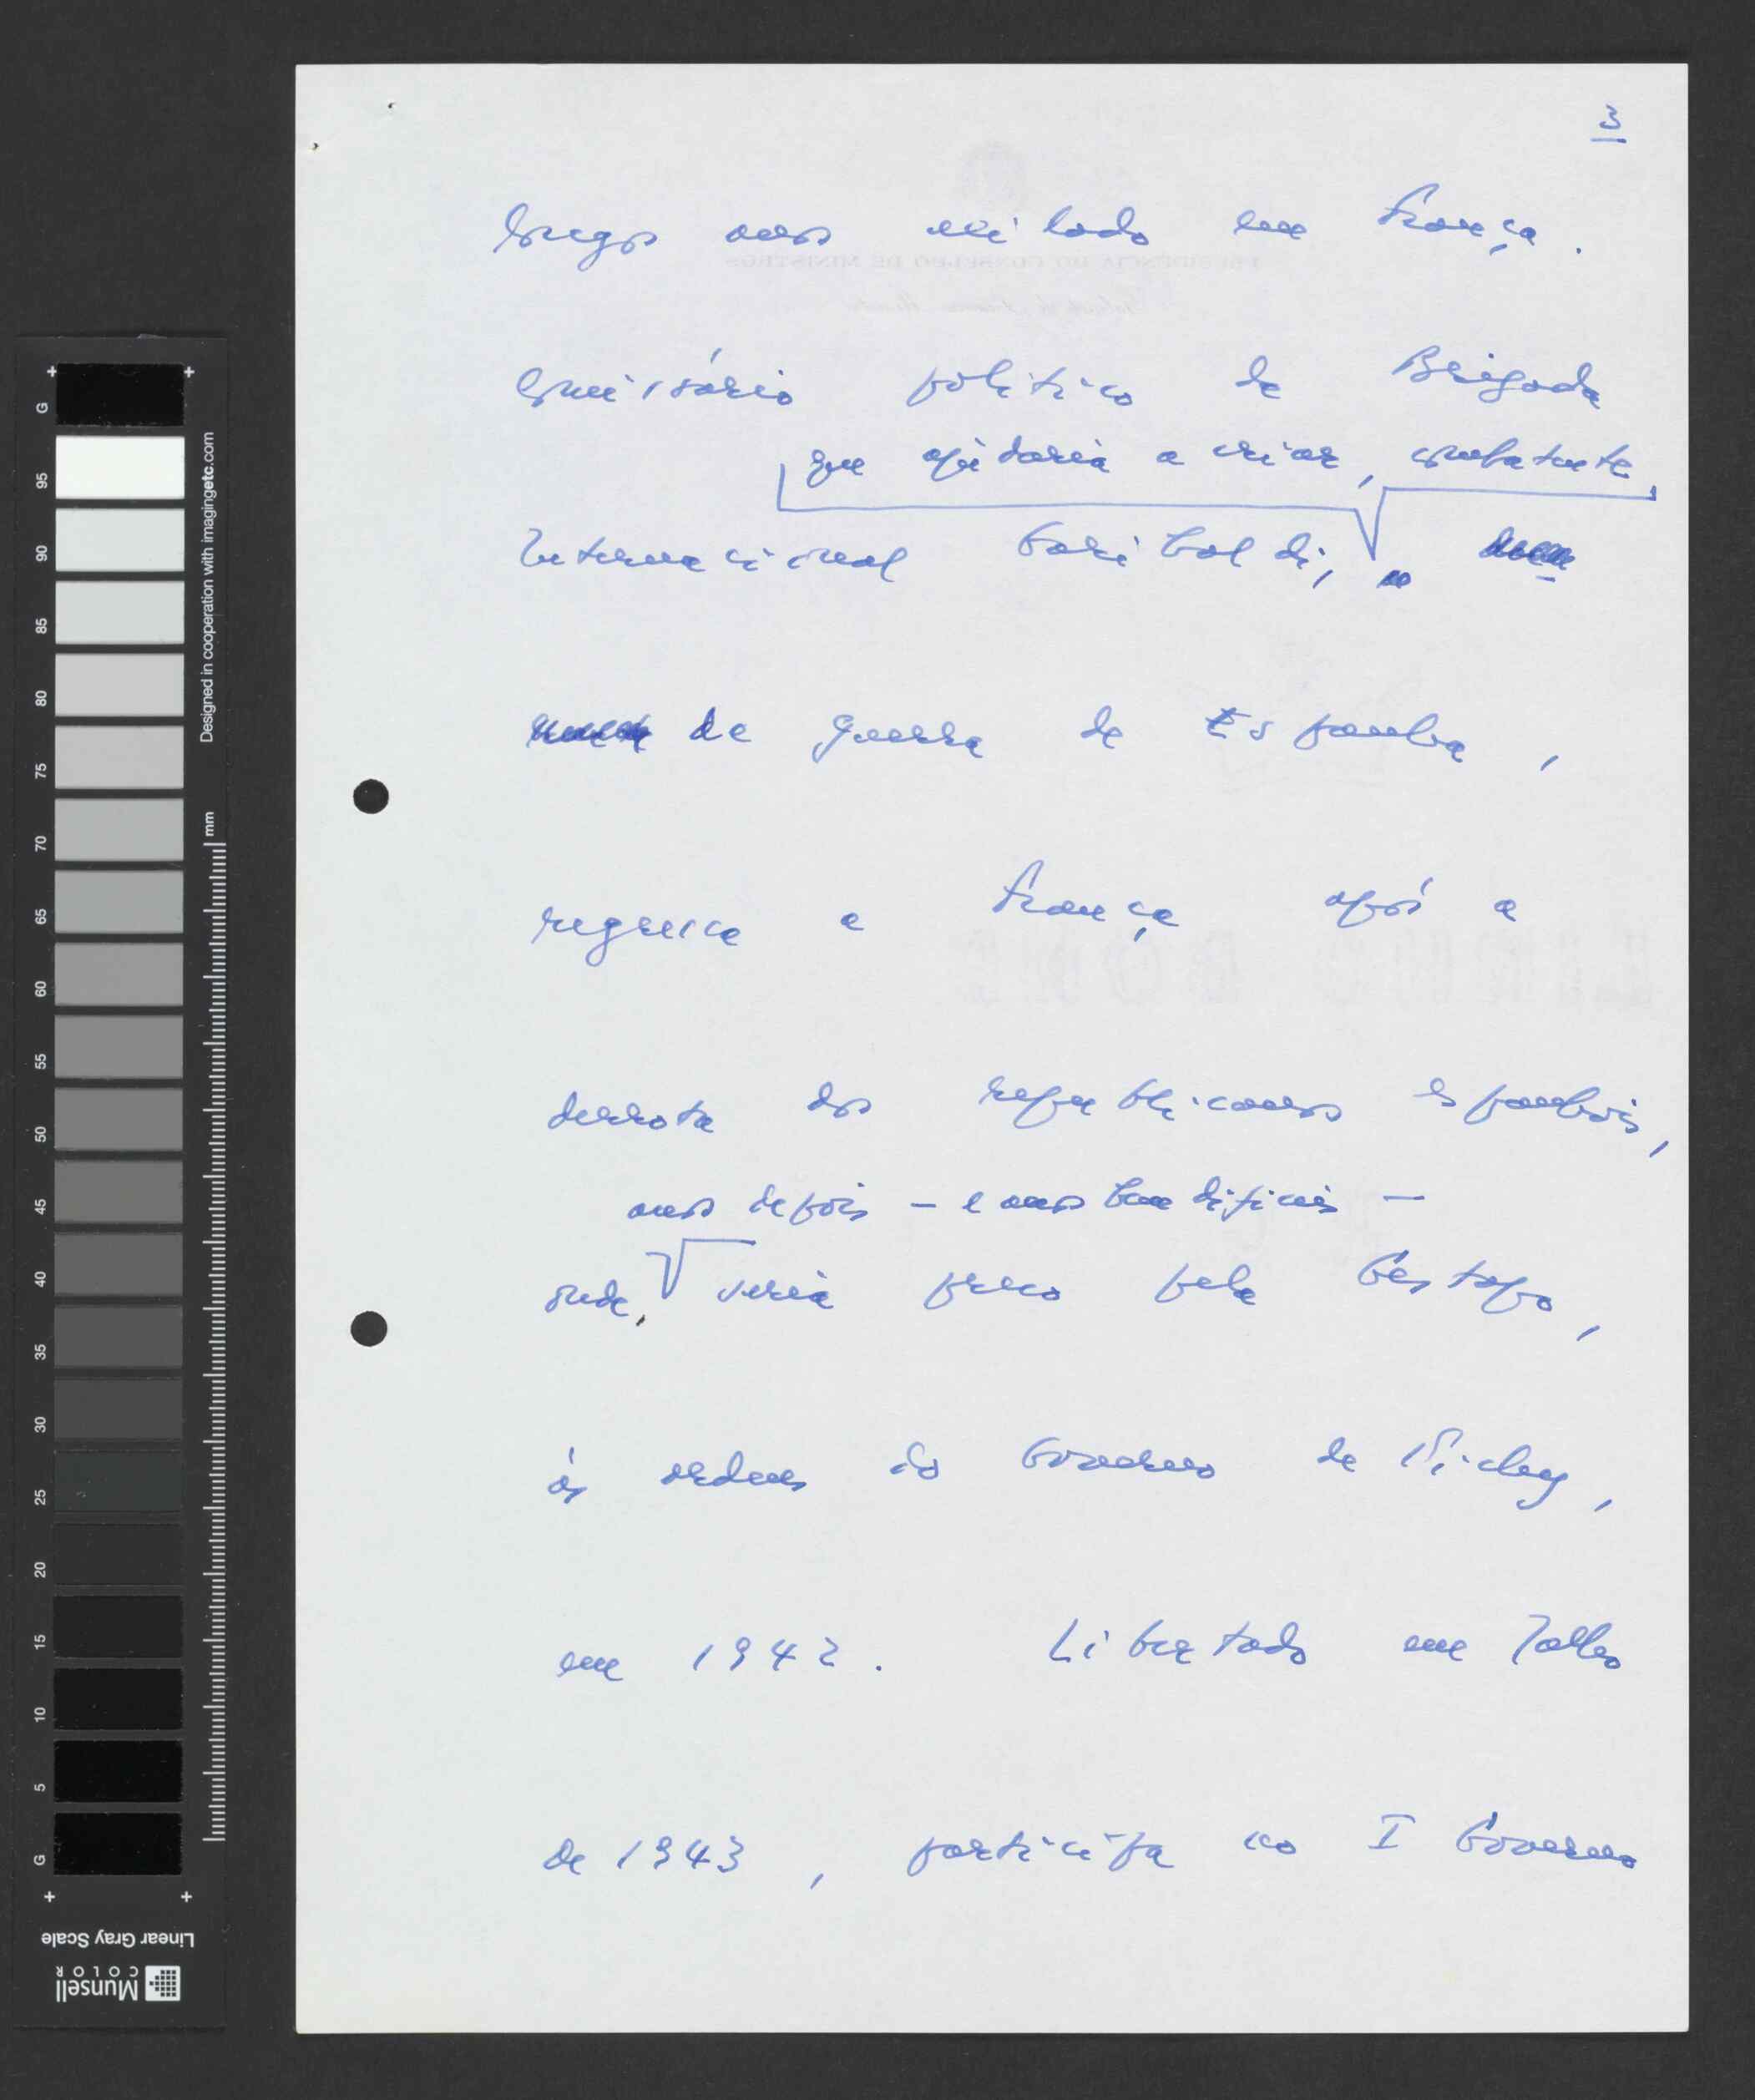 3
longos anos exilado em França.
Comissário político da Brigada
que ajudaria a criar, combatente,
Internacional Garibaldi,
da guerra de Espanha,
regressa a França após a
derrota dos republicanos espanhóis,
anos depois – e anos bem difíceis –
onde, seria preso pela Gestapo,
às ordens do Governo de Vichy,
em 1942. Libertado em Julho
de 1943, participa no I Governo
PRESIDÊNCIA DO CONSELHO DE MINISTROS
Designed in cooperation with imagingetc.com
mm
G
95
90
85
80
75
70
65
60
55
50
45
40
35
30
25
20
15
10
5
G
Linear Gray Scale
Munsell
COLOR